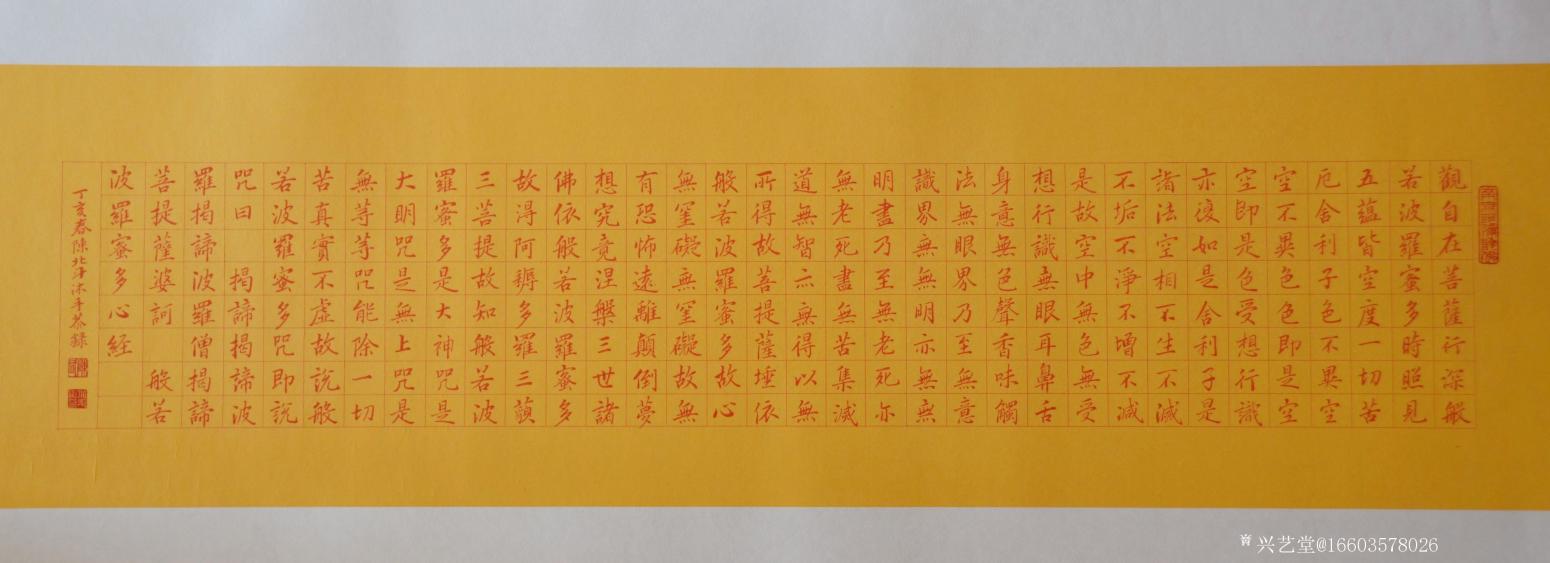 觀自在菩薩行深般
若波羅蜜多時照見
五蘊皆空度一切苦
厄舍利子色不異空
空不異色色即是空
空即是色受想行識
亦復如是舍利子是
諸法空相不生不滅
不垢不淨不增不減
是故空中無色無受
想行識無眼耳鼻舌
身意無色聲香味觸
法無眼界乃至無意
識界無無明亦無無
明盡乃至無老死亦
無老死盡無苦集滅
道無智亦無得以無
所得故菩提薩埵依
般若波羅蜜多故心
無罣礙無罣礙故無
有恐怖遠離顛倒夢
想究竟涅槃三世諸
佛依般若波羅蜜多
故得阿耨多羅三藐
三菩提故知般若波
羅蜜多是大神咒是
大明咒是無上咒是
無等等咒能除一切
苦真實不虛故說般
若波羅蜜多咒即說
咒曰 揭諦揭諦波
羅揭諦波羅僧揭諦
菩提薩婆訶 般若
波羅蜜多心経
丁亥春陳北沐手恭錄
兴艺堂@16603578026